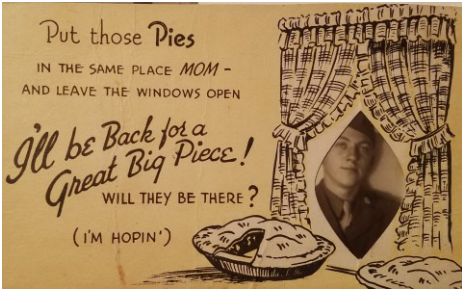 Put those Pies
IN THE SAME PLACE MOM -
AND LEAVE THE WINDOWS OPEN
I'll be Back for a
Great Big Piece!
WILL THEY BE THERE?
(I'M HOPIN')